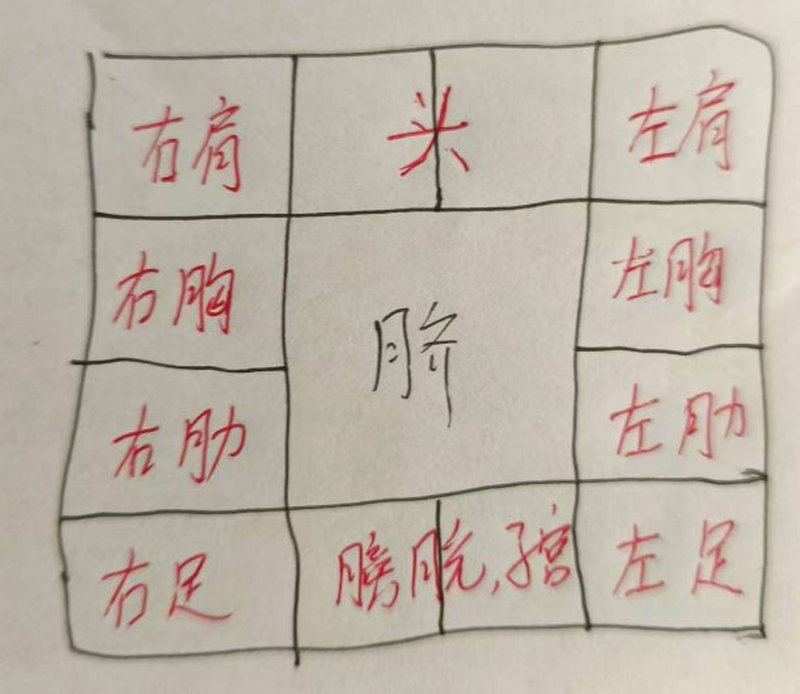 右肩 头 左肩
右胸 左胸
脐
右肋 左肋
右足 膀胱,子宫 左足